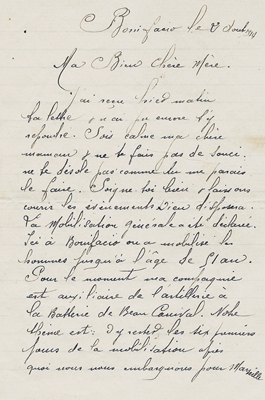 Bonifacio le 2 Août 1914
Ma Bien Chère Mère.
j'ai reçu hier matin
ta lettre
repondre. Sois calme ma chère
maman & ne te fais pas de souci.
ne te désole pas comme tu me parais
le faire. Soigne toi bien & laissons
courir les evènements Dieu disposera.
La Mobilisation generale a été déclarée.
Ici à Bonifacio on a mobilisé les
hommes jusqu'à l'age de 51 ans.
Pour le moment ma compagnie
est auxiliaire de l'artillerie à
la Batterie de Beau Notre
thème est: d'y rester les six premiers
jours de la mobilisation après
quoi nous nous embarquons pour Marseille